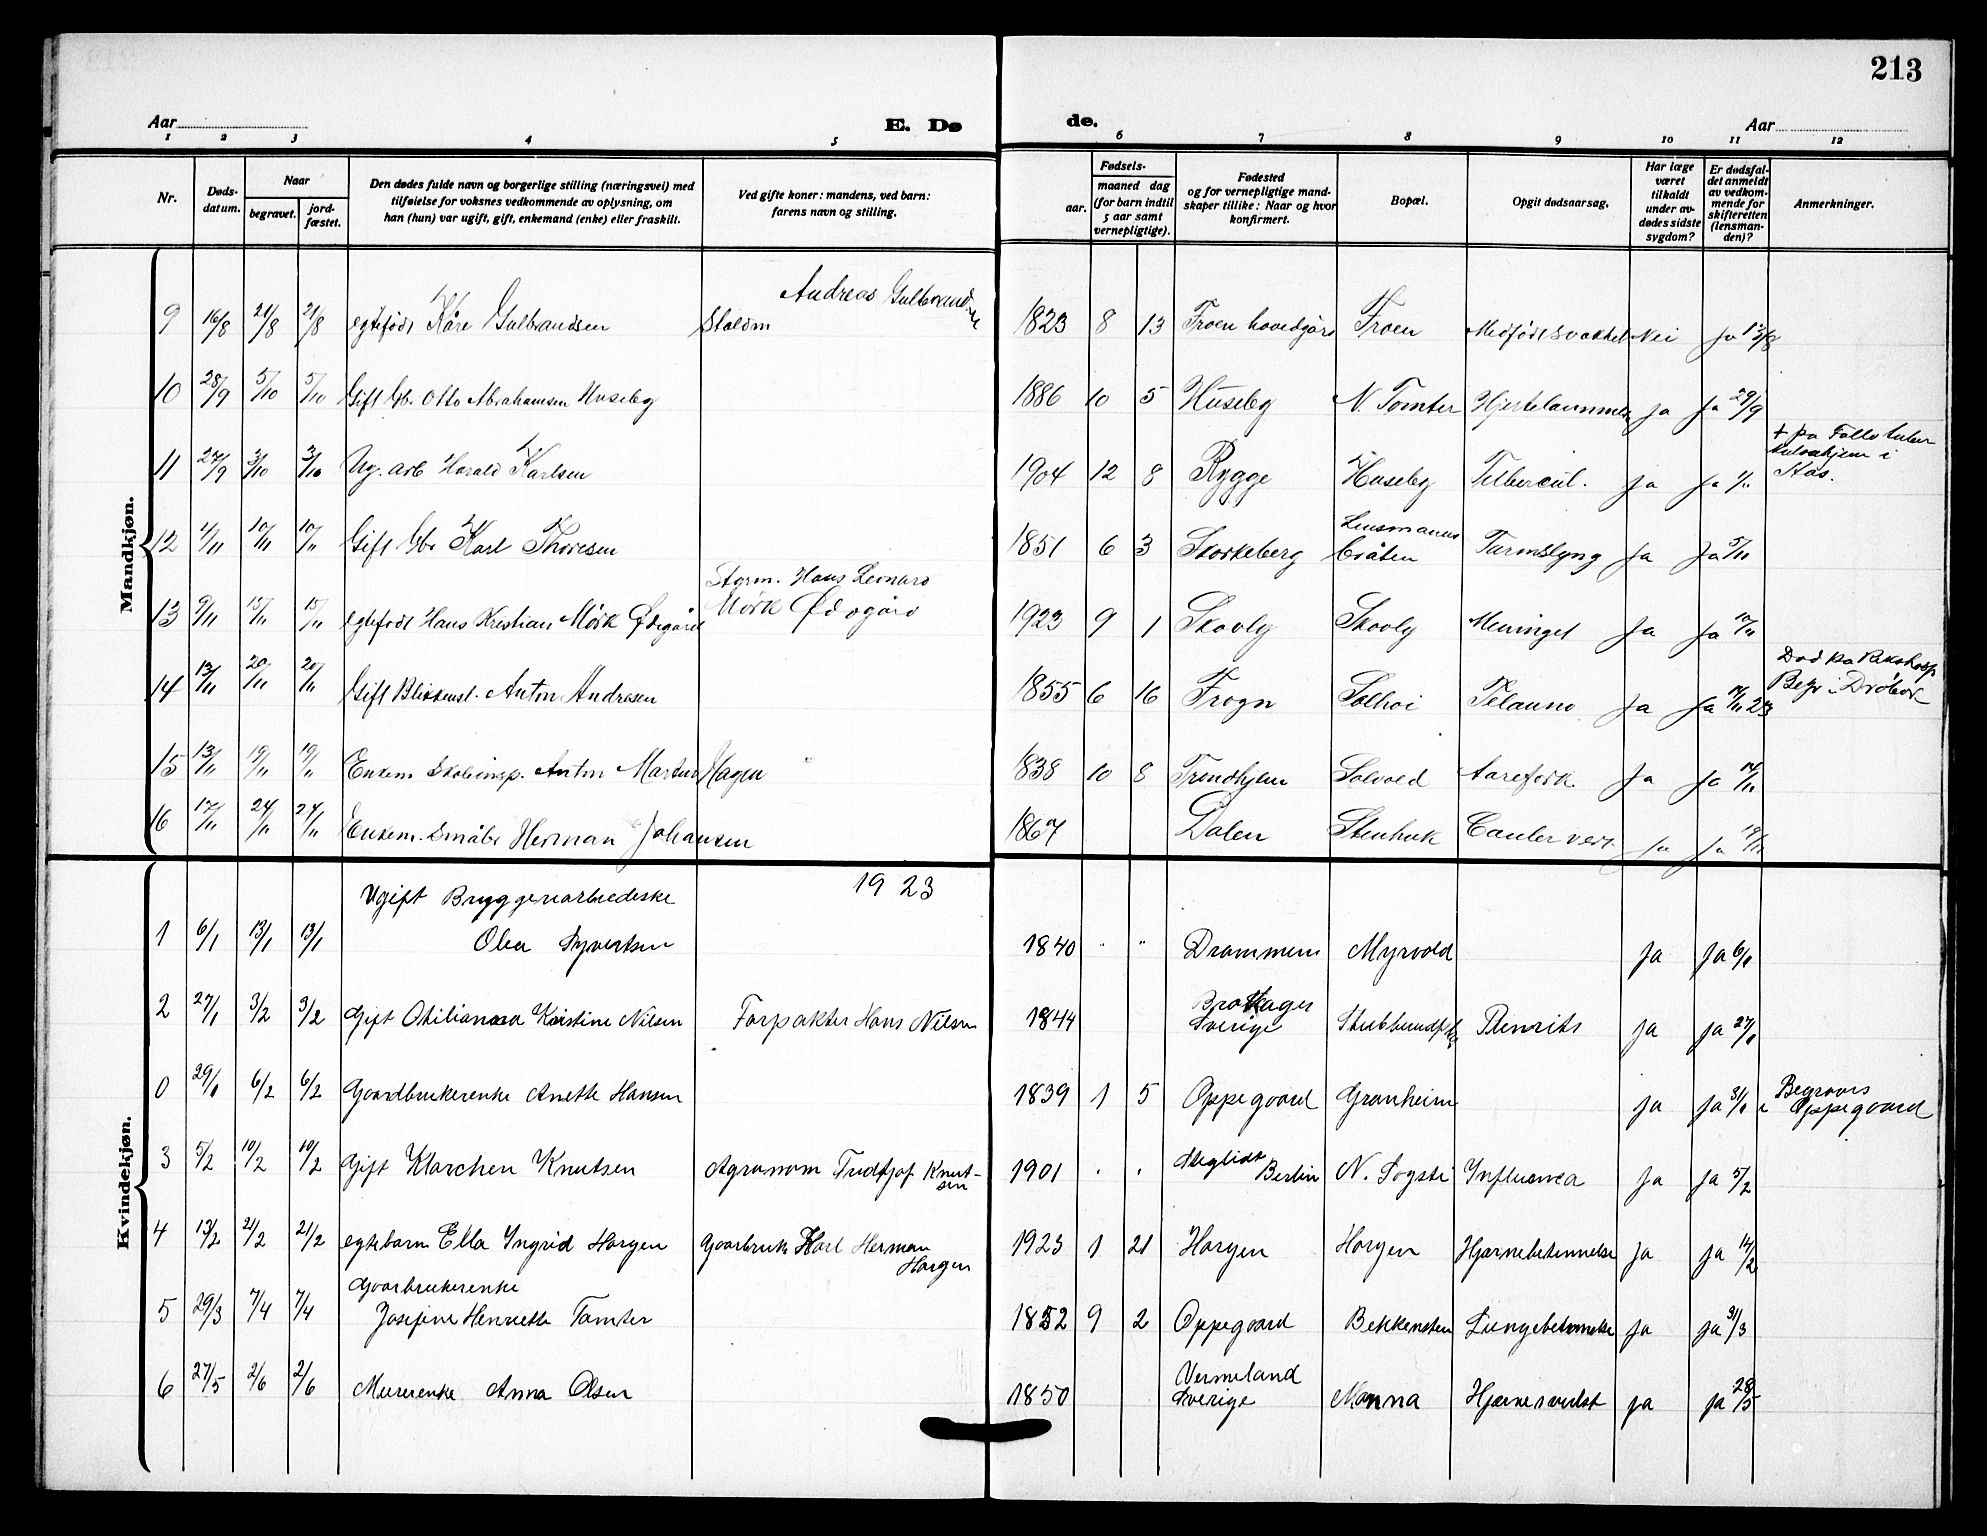 213
Aar
E. Dø
de.
Aar
1 2 3 4 5 6 7 8 9 10 11 12
Nr.
Døds-
datum.
Naar
begravet.
jord-
fæstet.
Den dødes fulde navn og borgerlige stilling (næringsvei) med
tilføielse for voksnes vedkommende av oplysning, om
han (hun) var ugift, gift, enkemand (enke) eller fraskilt.
Ved gifte koner: mandens, ved barn:
farens navn og stilling.
Fødsels-
aar.
maaned dag
(for barn indtil
5 aar samt
vernepligtige).
Fødested
og for vernepligtige mand-
skaper tillike: Naar og hvor
konfirmert.
Bopæl.
Opgit dødsaarsag.
Har læge
været
tilkaldt
under av-
dødes sidste
sygdom?
Er dødsfal-
det anmeldt
av vedkom-
mende for
skifteretten
(lensman-
den)?
Anmerkninger.
Mandkjøn.
Andreas Gulbrandsen
9 16/8 21/8 21/8 egtefødt Kåre Gulbrandsen Staldm 1823 8 13 Froen hovedgård Froen Medfødt svakhet Nei Ja 17/8
10 28/9 5/10 5/10 Gift Gb. Otto Abrahamsen Huseby 1886 10 5 Huseby N. Tomter Hjertelammelse Ja Ja 29/9
+ på Follo tuber
kulosehjem i
11 27/9 3/10 3/10 Ug. arb Harald Karlsen 1904 12 8 Rygge Huseby Tubercul. Ja Ja 1/10 Ås.
Lensmanns
12 4/11 10/11 10/11 Gift Gbr Karl Thoresen 1851 6 3 Skorkeberg bråten Tarmslyng Ja Ja 5/11
Agrm. Hans Leonard
13 9/11 15/11 15/11 egtefødt Hans Kristian Mørk Ødegård Mørk Ødegård 1923 9 1 Skovly Skovly Meningit Ja Ja 10/11
Død på Rikshosp
14 13/11 20/11 20/11 Gift Blikkensl. Anton Andresen 1855 6 16 Frogn Solhoi Tetanus Ja Ja 14/11 23 Begr i Drøbak
15 13/11 19/11 19/11 Enkem Skoleinsp. Anton Martin Hagen " 1838 10 8 Trondhjem Solvold Aarefork. Ja Ja 14/11
16 17/11 24/11 24/11 Enkem. Småbr Herman Johansen 1867 Dalen Stenhuk Cancer ventr. Ja Ja 19/11
Kvindekjøn.
1923
Ugift Bryggeriarbeiderske
1 6/1 13/1 13/1 Olea Syvertsen 1840 " " Drammen Myrvold Ja Ja 6/1
2 27/1 3/2 3/2 Gift Otilianna Kristine Nilsen Forpakter Hans Nilsen 1844 Sverige Pleurits Ja Ja 27/1
0 29/1 6/2 6/2 Gaardbrukerenke Anette Hansen 1839 1 5 Oppegaard Granheim Ja Ja 31/1 Begraves
i Oppegaard
3 5/2 10/2 10/2 Gift Klarchen Knutsen Agronom Fridtjof Knut-
sen 1901 " " Steglidt Berlin N. Sogsti Influensa Ja Ja 5/2
4 13/2 21/2 21/2 egtebarn Ella Ingrid Horgen Gaarbruk Karl Herman
Horgen 1923 1 21 Horgen Horgen Hjernebetennelse Ja Ja 14/2
Gaarbrukerenke
5 29/3 7/4 7/4 Josefine Henriette Tomter 1852 9 2 Oppegaard Bekkensten Lungebetennelse Ja Ja 31/3
6 27/5 2/6 2/6 Murerenke Anna Olsen 1850 Vermeland
Sverige Nonna Hjernesvulst Ja Ja 28/5